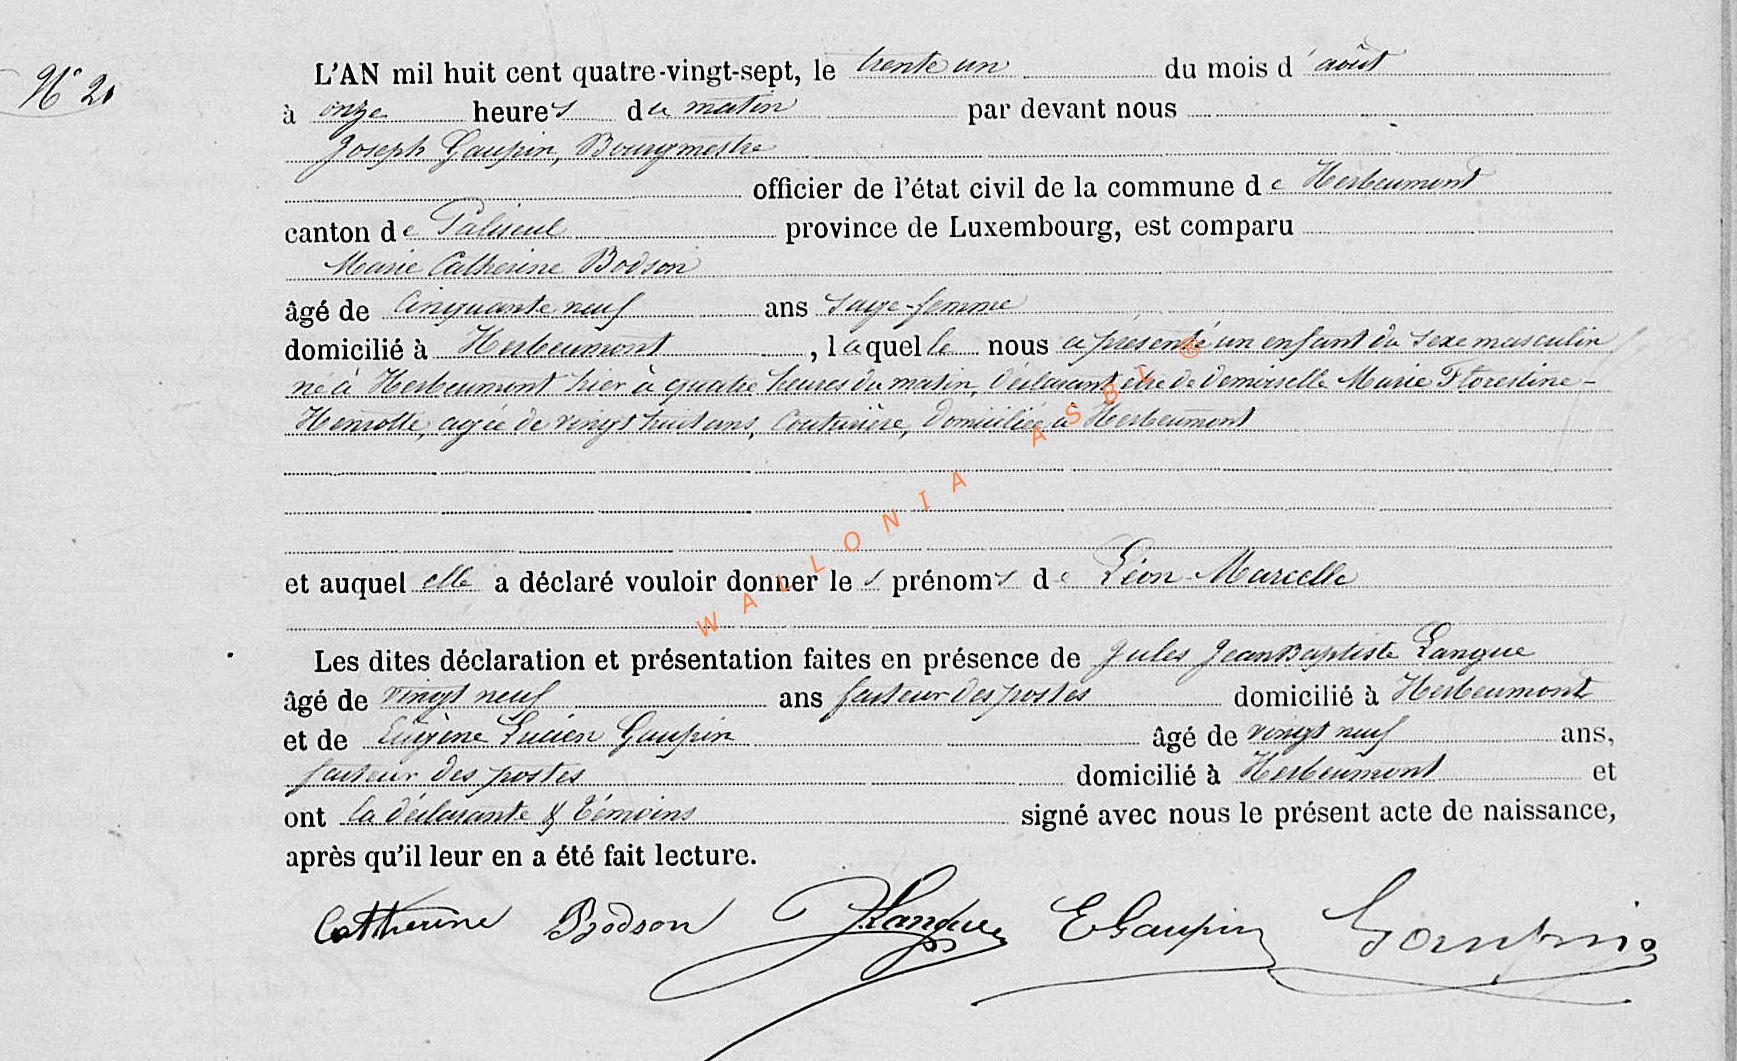 N° 21
L'AN mil huit cent quatre-vingt-sept, le trente un du mois d'août
à onze heures du matin par devant nous
Joseph Gaupin, Bourgmestre
officier de l'état civil de la commune de Herbeumont
canton de Paliseul province de Luxembourg, est comparu
Marie Catherine Bodson
âgé de Cinquante neuf ans sage-femme
domicilié à Herbeumont, laquelle nous a présenté un enfant du sexe masculin
né à Herbeumont hier à quatre heures du matin, déclarant être de demoiselle Marie Florestine
Henrotte, agée de vingt huit ans, Couturière, domiciliée à Herbeumont
WALLONIA ASBL ®
et auquel elle a déclaré vouloir donner les prénoms de Léon Marcelle
Les dites déclaration et présentation faites en présence de Jules Jean Baptiste Langue
âgé de vingt neuf ans facteur des postes domicilié à Herbeumont
et de Eugène Lucien Gaupin âgé de vingt neuf ans,
facteur des postes domicilié à Herbeumont et
ont la déclarante & témoins signé avec nous le présent acte de naissance,
après qu'il leur en a été fait lecture.
Catherine Bodson JLangue E Gaupin Gaupin